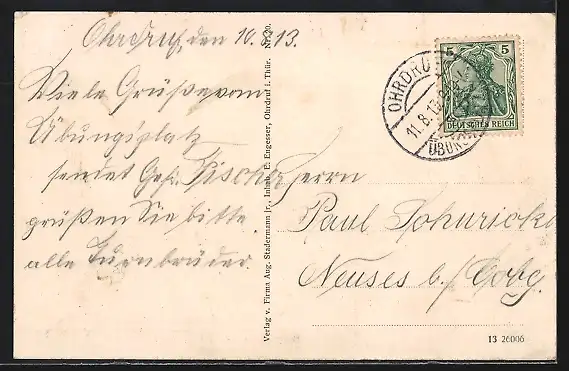 Ohrdruf, den 10.8.13.
Viele Grüße vom
Übungsplatz
sendet Gefr. Fischer
grüßen Sie bitte
alle Turnbrüder.
Verlag v. Firma Aug. Stadermann jr., Inhab. E. Engesser, Ohrdruf i. Thür.
5 5
DEUTSCHES REICH
OHRDRU
11.8.13
ÜBUN
Herrn
Paul
Neuses b./ Cobg.
13 26006